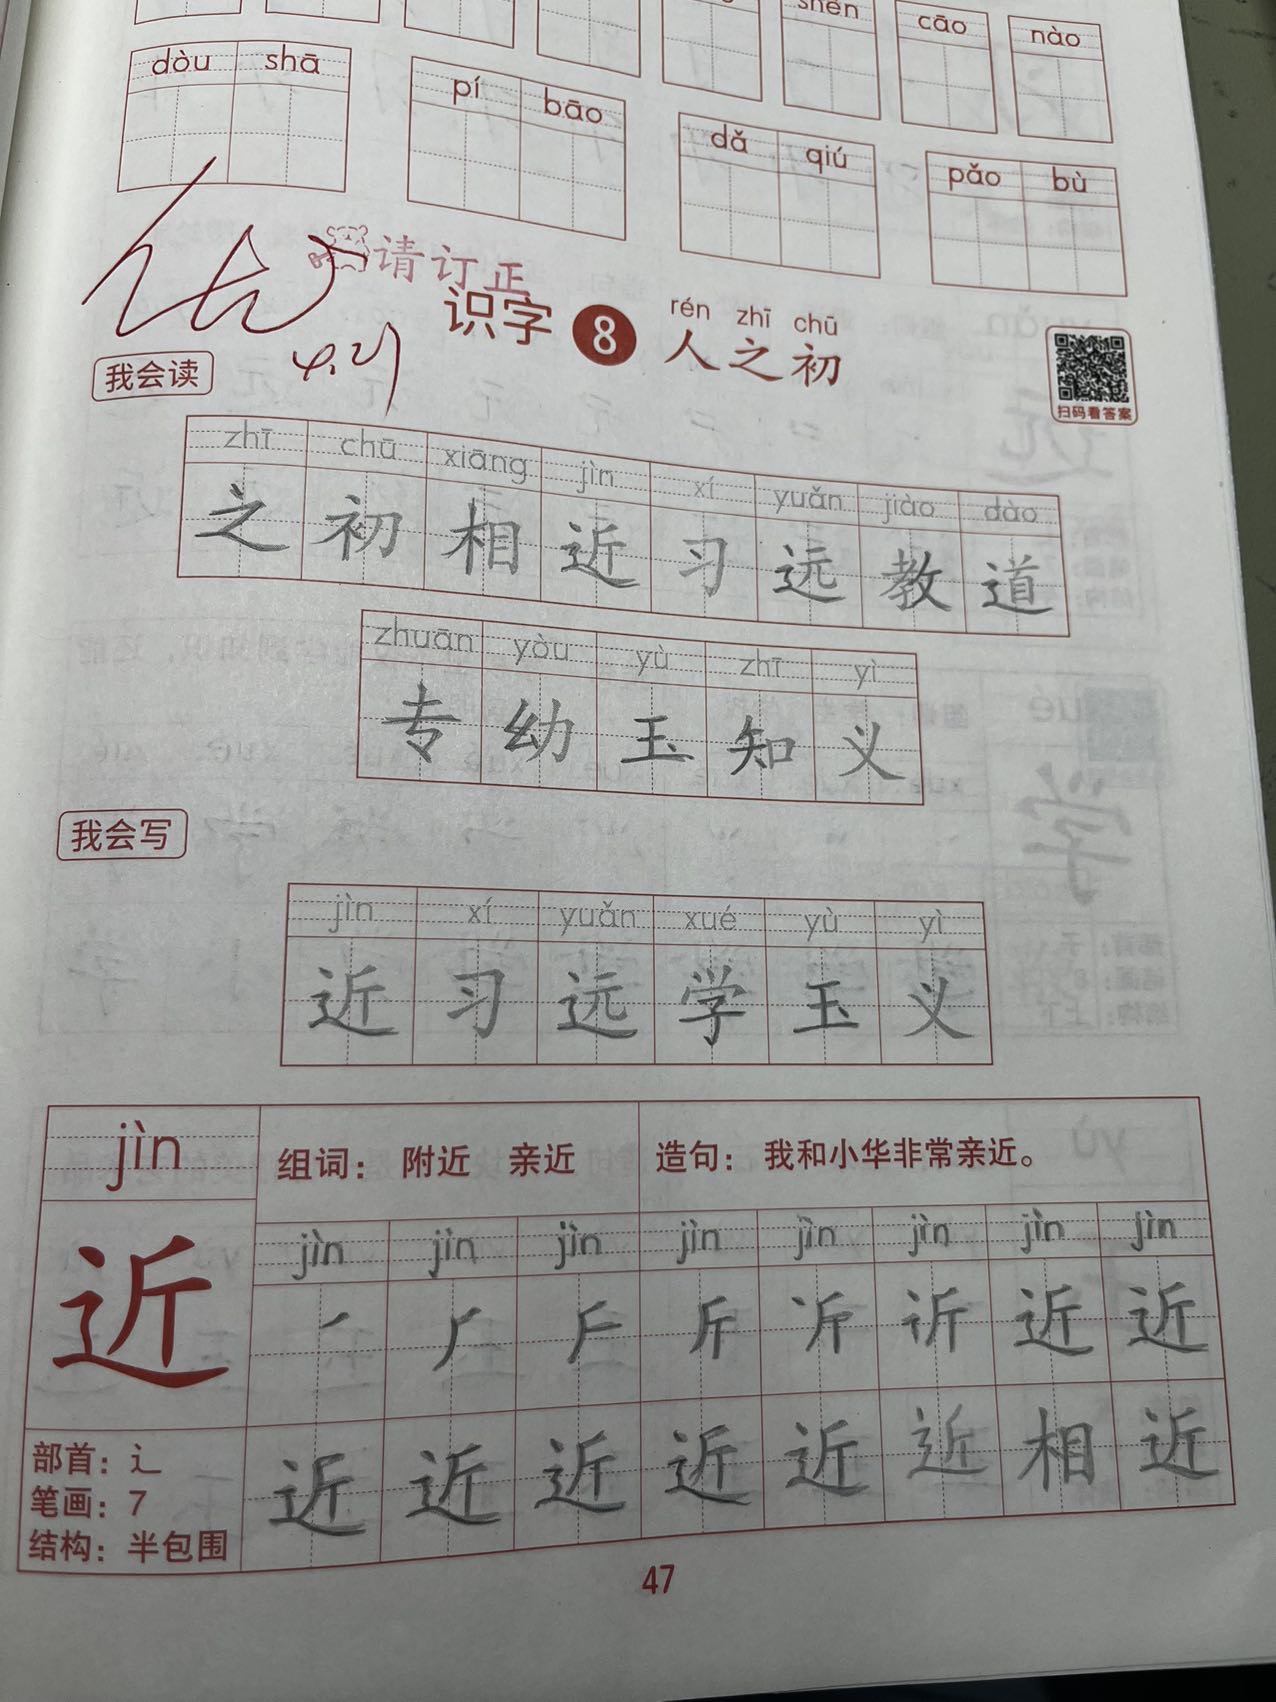 shēn cāo nào
dòu shā pí bāo dǎ qiú pǎo bù
请订正
识字 8 人之初
rén zhī chū
4.21
我会读
扫码看答案
zhī chū xiāng jìn xí yuǎn jiào dào
之 初 相 近 习 远 教 道
zhuān yòu yù zhī yì
专 幼 玉 知 义
我会写
jìn xí yuǎn xué yù yì
近 习 远 学 玉 义
jìn 组词：附近 亲近 造句：我和小华非常亲近。
jìn jìn jìn jìn jìn jìn jìn jìn
近 近 近
部首：辶
笔画：7
结构：半包围
近 近 近 近 近 近 相 近
47